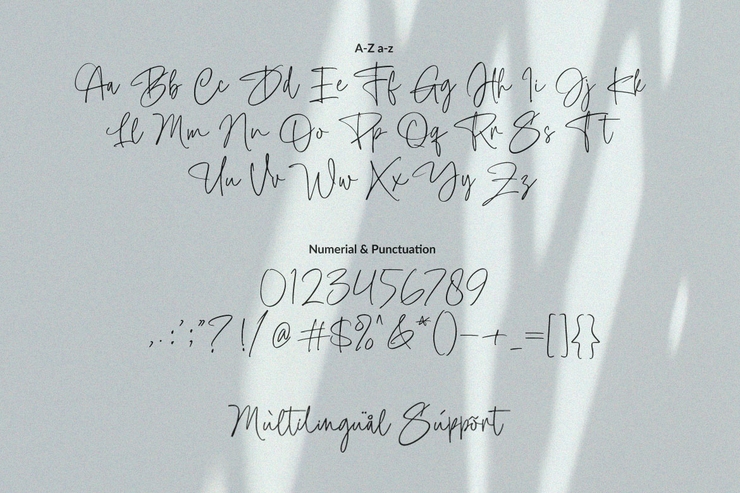 A-Z a-z
Aa Bb Cc Dd Ee Ff Gg Hh Ii Jj Kk
Ll Mm Nn Oo Pp Qq Rr Ss Tt
Uu Vv Ww Xx Yy Zz
Numerial & Punctuation
0123456789
,.:';"?!/@#$%^&*()-+_=[]{}
Mùltilinguäl Súppõrt